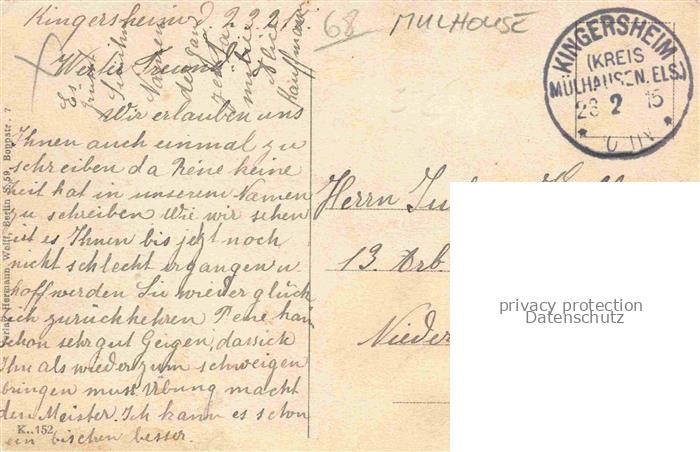 Kingersheim d. 23.2.15
68 MULHOUSE
Werter Freund
Es
grüsst
Namen
der ganzen
Familie
Kauffmann
Wir erlauben uns
Ihnen auch einmal zu
schreiben da Réne keine
Zeit hat in unserem Namen
zu schreiben Wie wir sehen
ist es Ihnen bis jetzt noch
nicht schlecht ergangen u.
hoff werden Sie wieder glück
lich zurückkehren Rene kan
schon sehr gut Geigen, dass ich
Ihn als wieder zum schweigen
bringen muss Übung macht
den Meister. Ich kann es schon
ein bischen besser.
KINGERSHEIM
(KREIS
MÜLHAUSEN, ELS.)
23 2 15
Herrn
13. Arb.
Nieder
Verlag Hermann Wolff, Berlin S. 59, Boppstr. 7
K. 152
privacy protection
Datenschutz